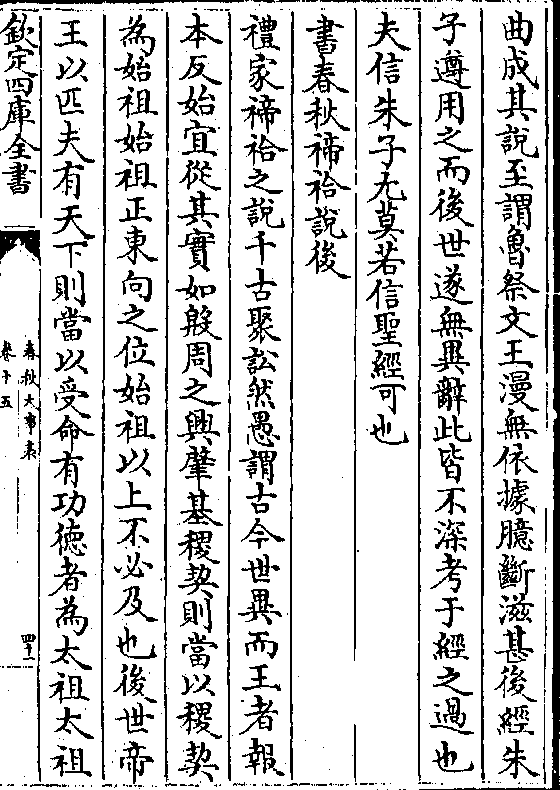 曲成其說至謂魯祭文王漫無依據臆斷滋甚後經朱
子遵用之而後世遂無異辭此皆不深考于經之過也
夫信朱子尤莫若信聖經可也
書春秋禘祫說後
禮家禘祫之說千古聚訟然愚謂古今世異而王者報
本反始宜從其實如殷周之興肇基稷契則當以稷契
為始祖始祖正東向之位始祖以上不必及也後世帝
王以匹夫有天下則當以受命有功徳者為太祖太祖
欽定四庫全書
春秋大事表
卷十五
四十一